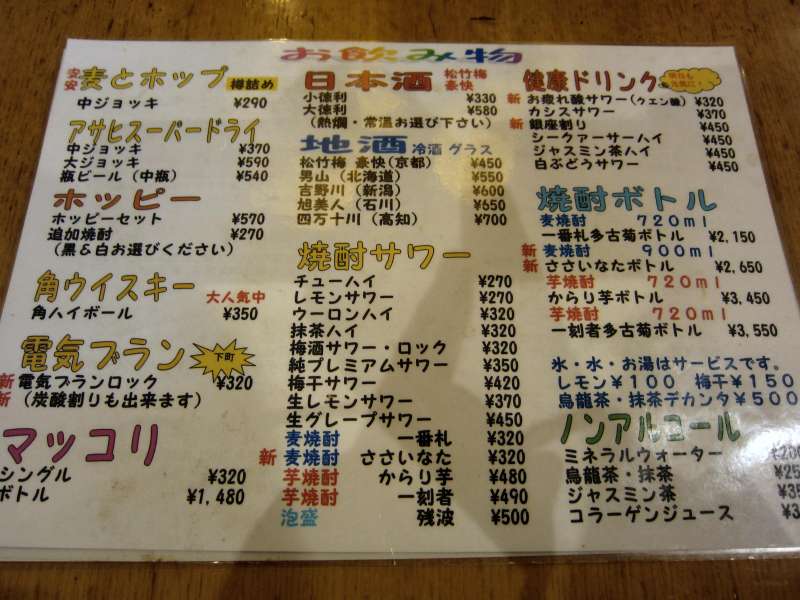 お飲み物
安安 麦とホップ 樽詰め
中ジョッキ ¥290
アサヒスーパードライ
中ジョッキ ¥370
大ジョッキ ¥590
瓶ビール（中瓶） ¥540
ホッピー
ホッピーセット ¥570
追加焼酎 ¥270
（黒&白お選びください）
角ウイスキー 大人気中
角ハイボール ¥350
電気ブラン 下町
新 電気ブランロック ¥320
新（炭酸割りも出来ます）
マッコリ
シングル ¥320
ボトル ¥1,480
日本酒 松竹梅 豪快
小徳利 ¥330
大徳利 ¥580
（熱燗・常温お選び下さい）
地酒 冷酒 グラス
松竹梅 豪快（京都） ¥450
男山（北海道） ¥550
吉野川（新潟） ¥600
旭美人（石川） ¥650
四万十川（高知） ¥700
焼酎サワー
チューハイ ¥270
レモンサワー ¥270
ウーロンハイ ¥320
抹茶ハイ ¥320
梅酒サワー・ロック ¥320
純プレミアムサワー ¥350
梅干サワー ¥420
生レモンサワー ¥370
生グレープサワー ¥450
麦焼酎 一番札 ¥320
新 麦焼酎 ささいなた ¥320
芋焼酎 からり芋 ¥480
芋焼酎 一刻者 ¥490
泡盛 残波 ¥500
健康ドリンク 明日も元気に！
新 お疲れ酸サワー（クエン酸） ¥320
カシスサワー ¥370
新 銀座割り ¥450
シークァーサーハイ ¥450
ジャスミン茶ハイ ¥450
白ぶどうサワー ¥450
焼酎ボトル
麦焼酎 720ml
一番札多古菊ボトル ¥2,150
新 麦焼酎 900ml
新 ささいなたボトル ¥2,650
芋焼酎 720ml
からり芋ボトル ¥3,450
芋焼酎 720ml
一刻者多古菊ボトル ¥3,550
氷・水・お湯はサービスです。
レモン¥100 梅干¥150
烏龍茶・抹茶デカンタ¥500
ノンアルコール
ミネラルウォーター
烏龍茶・抹茶
ジャスミン茶
コラーゲンジュース